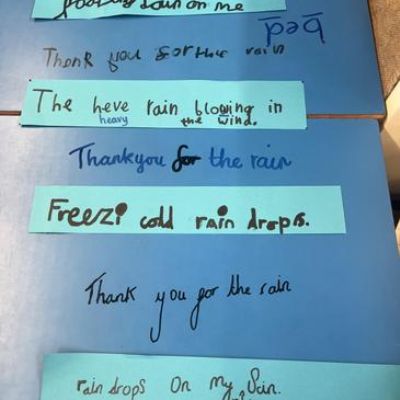 pouring down on me
bed
Thank you for the rain
The heve rain blowing in
heavy the wind.
Thankyou for the rain
Freezi cold rain drops.
Thank you for the rain
rain drops on my